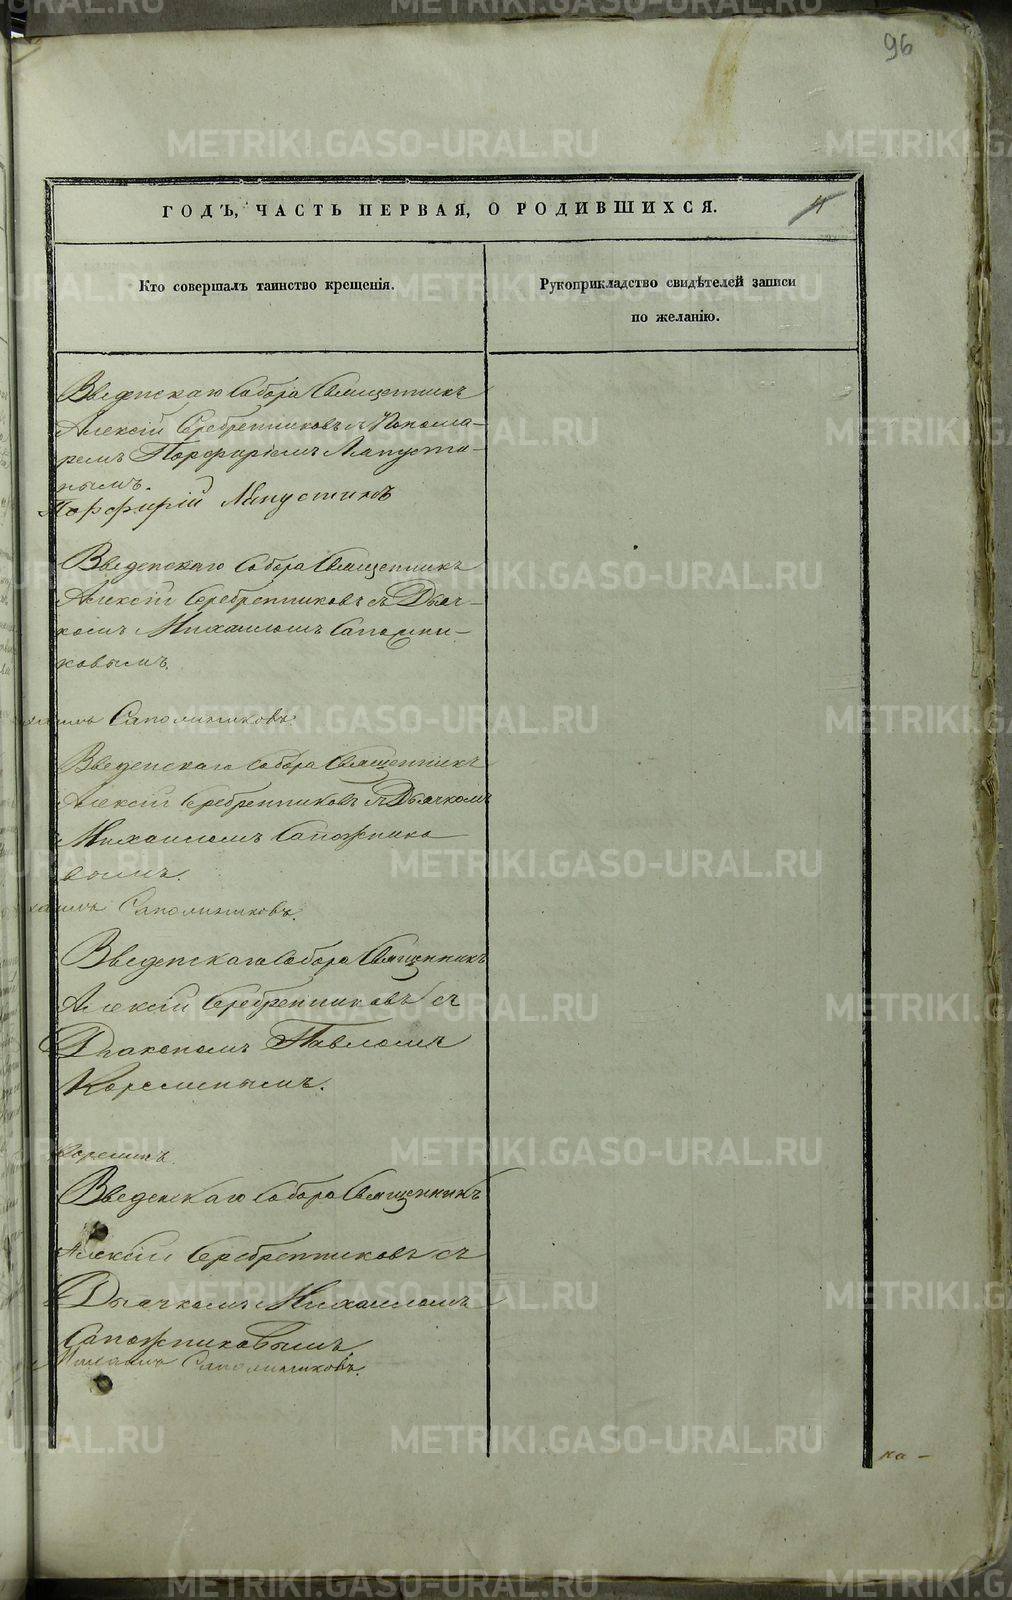 96
ГОДЪ, ЧАСТЬ ПЕРВАЯ, О РОДИВШИХСЯ.
4
Кто совершалъ таинство крещенія.
Рукоприкладство свидѣтелей записи
по желанію.
Введенскаго Собора Священникъ
Алексій Серебренниковъ с Понома-
ремъ Порфиріемъ Лапусти-
нымъ.
Порфирій Лапустинъ
Введенскаго Собора Священникъ
Алексій Серебренниковъ съ Дьяч-
комъ Михаиломъ Сапожни-
ковымъ.
Сапожниковъ.
Введенскаго Собора Священникъ
Алексій Серебренниковъ съ Дьячкомъ
Михаиломъ Сапожнико
вымъ.
Сапожниковъ.
Введенскаго Собора Священникъ
Алексій Серебренниковъ съ
Диакономъ Павломъ
Корелинымъ.
Корелинъ.
Введенскаго Собора Священникъ
Алексій Серебренниковъ съ
Дьячкомъ Михаиломъ
Сапожниковымъ
Михаилъ Сапожниковъ.
ка-
METRIKI.GASO-URAL.RU